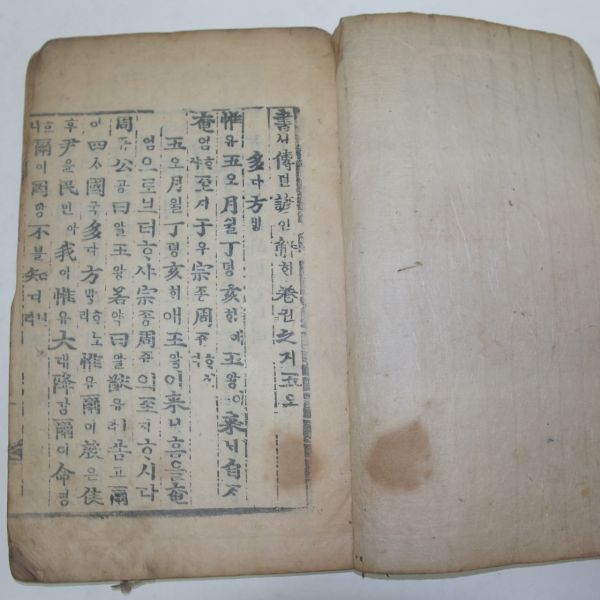 書셔傳뎐諺언解ᄒᆡ卷권之지五오
多다方방
惟유五오月월丁뎡亥ᄒᆡ예王왕이來ᄅᆡ自ᄌᆞ
奄엄ᄒᆞ샤至지于우宗종周쥬ᄒᆞ시다
五오月월丁뎡亥ᄒᆡ애王왕이來ᄅᆡᄒᆞ욤을奄
엄으로브터ᄒᆞ샤宗종周쥬의至지ᄒᆞ시다
周쥬公공曰왈王왕若약曰왈猷유ㅣ라告고爾
이四ᄉᆞ國국多다方방ᄒᆞ노라惟유爾이殷은侯
후尹윤民민아我아惟유大대降강爾이命명
ᄒᆞ니爾이罔망不블知디니라